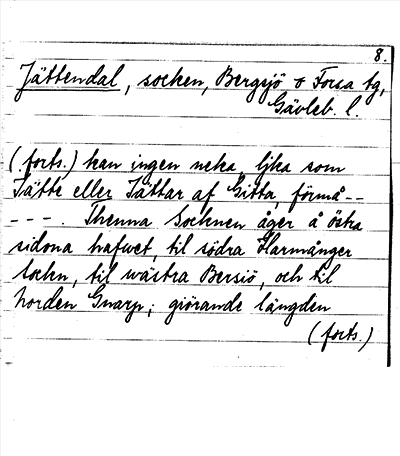 8.
Jättendal, socken, Bergsjö o Forsa tg,
Gävleb. l.
(forts.) kan ingen neka, ljka som
Jätte eller Jättar af Gitta, förmå--
---. Thenna Socknen åger å östra
sidona hafwet, til södra Harmånger
sockn, til wästra Bersiö, och til
norden Gnarp; giörande längden
(forts.)